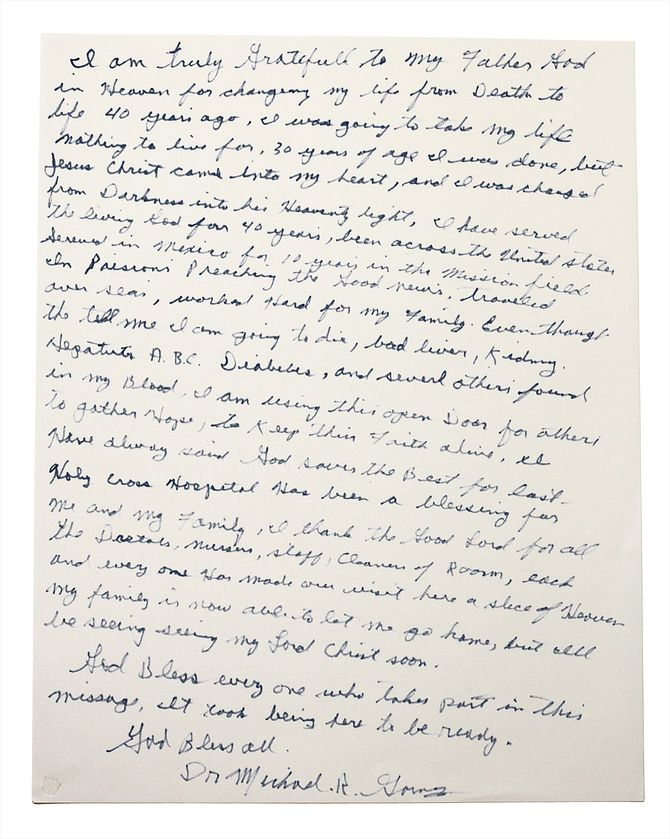 I am truly Gratefull to my Father God
in Heaven for changeing my life from Death to
life 40 years ago, I was going to take my life
nothing to live for, 30 years of age I was done, but
Jesus Christ came into my heart, and I was changed
from Darkness into his Heavenly light, I have served
the living God for 40 years, been across the United States
Served in Mexico for 10 years in the Mission field.
In Prisions Preaching the Good news, traveled
over seas, worked Hard for my Family. Even though
the tell me I am going to die, bad liver, Kidney.
Hepatuts A.B.C. Diabetes, and severl others found
in my Blood, I am using this open Door for others
to gather Hope, to Keep this Faith alive. I
Have always said God saves the Best for last.
Holy Cross Hospital Has been a blessing for
me and my Family, I thank the Good Lord for all
the Doctors, nurses, staff, Cleaners of Room, each
and every one Has made our visit here a slice of Heaven
My family is now able to let me go home, but Ill
be seeing seeing my Lord Christ soon.
God Bless every one who takes part in this
missage, It took being here to be ready.
God Bless all.
Dr Michael. R.